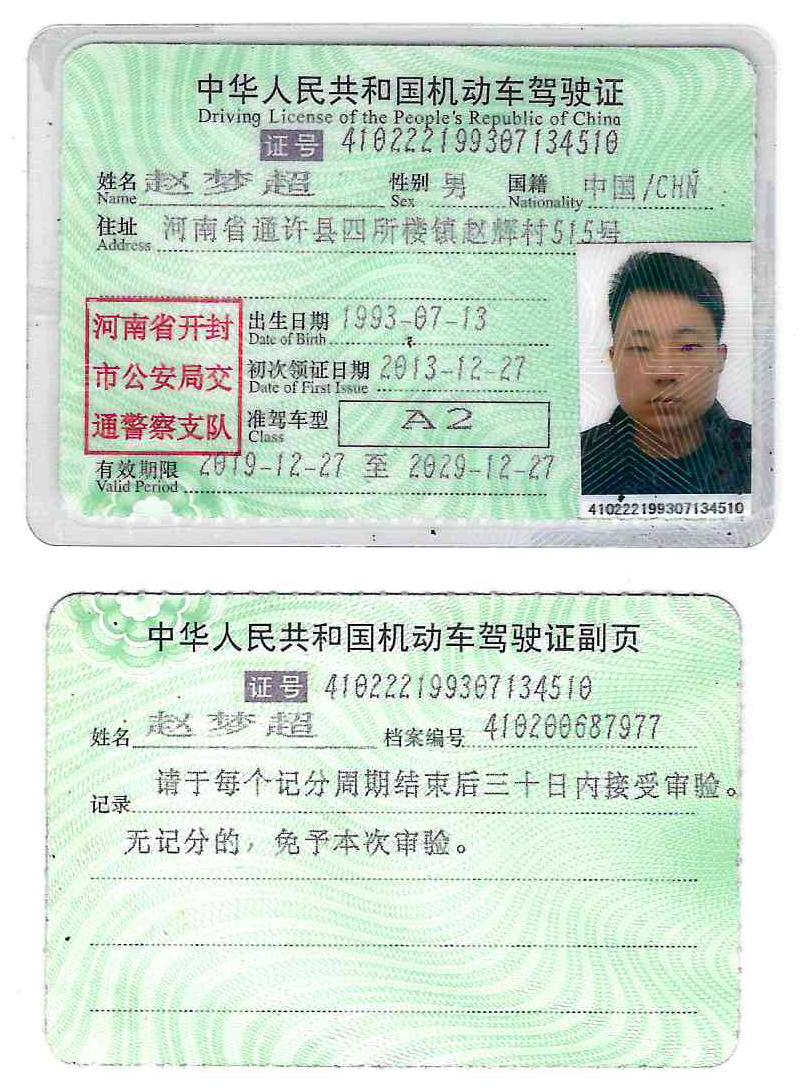 中华人民共和国机动车驾驶证
Driving License of the People's Republic of China
证号 410222199307134510
姓名 赵梦超 性别 男 国籍 中国/CHN
Name Sex Nationality
住址 河南省通许县四所楼镇赵辉村515号
Address
河南省开封
市公安局交
通警察支队
出生日期 1993-07-13
Date of Birth
初次领证日期 2013-12-27
Date of First Issue
准驾车型 A2
Class
有效期限 2019-12-27 至 2029-12-27
Valid Period
410222199307134510
中华人民共和国机动车驾驶证副页
证号 410222199307134510
姓名 赵梦超 档案编号 410200687977
记录 请于每个记分周期结束后三十日内接受审验。
无记分的，免予本次审验。